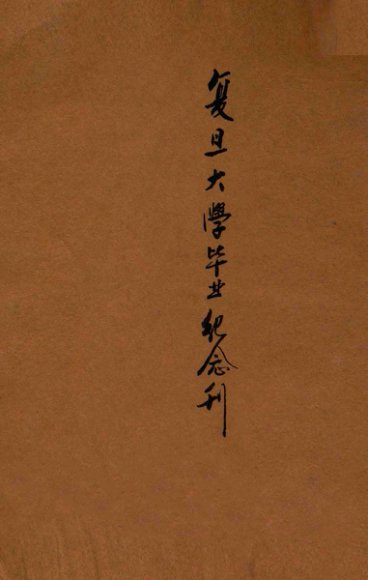 复旦大學毕业纪念刊